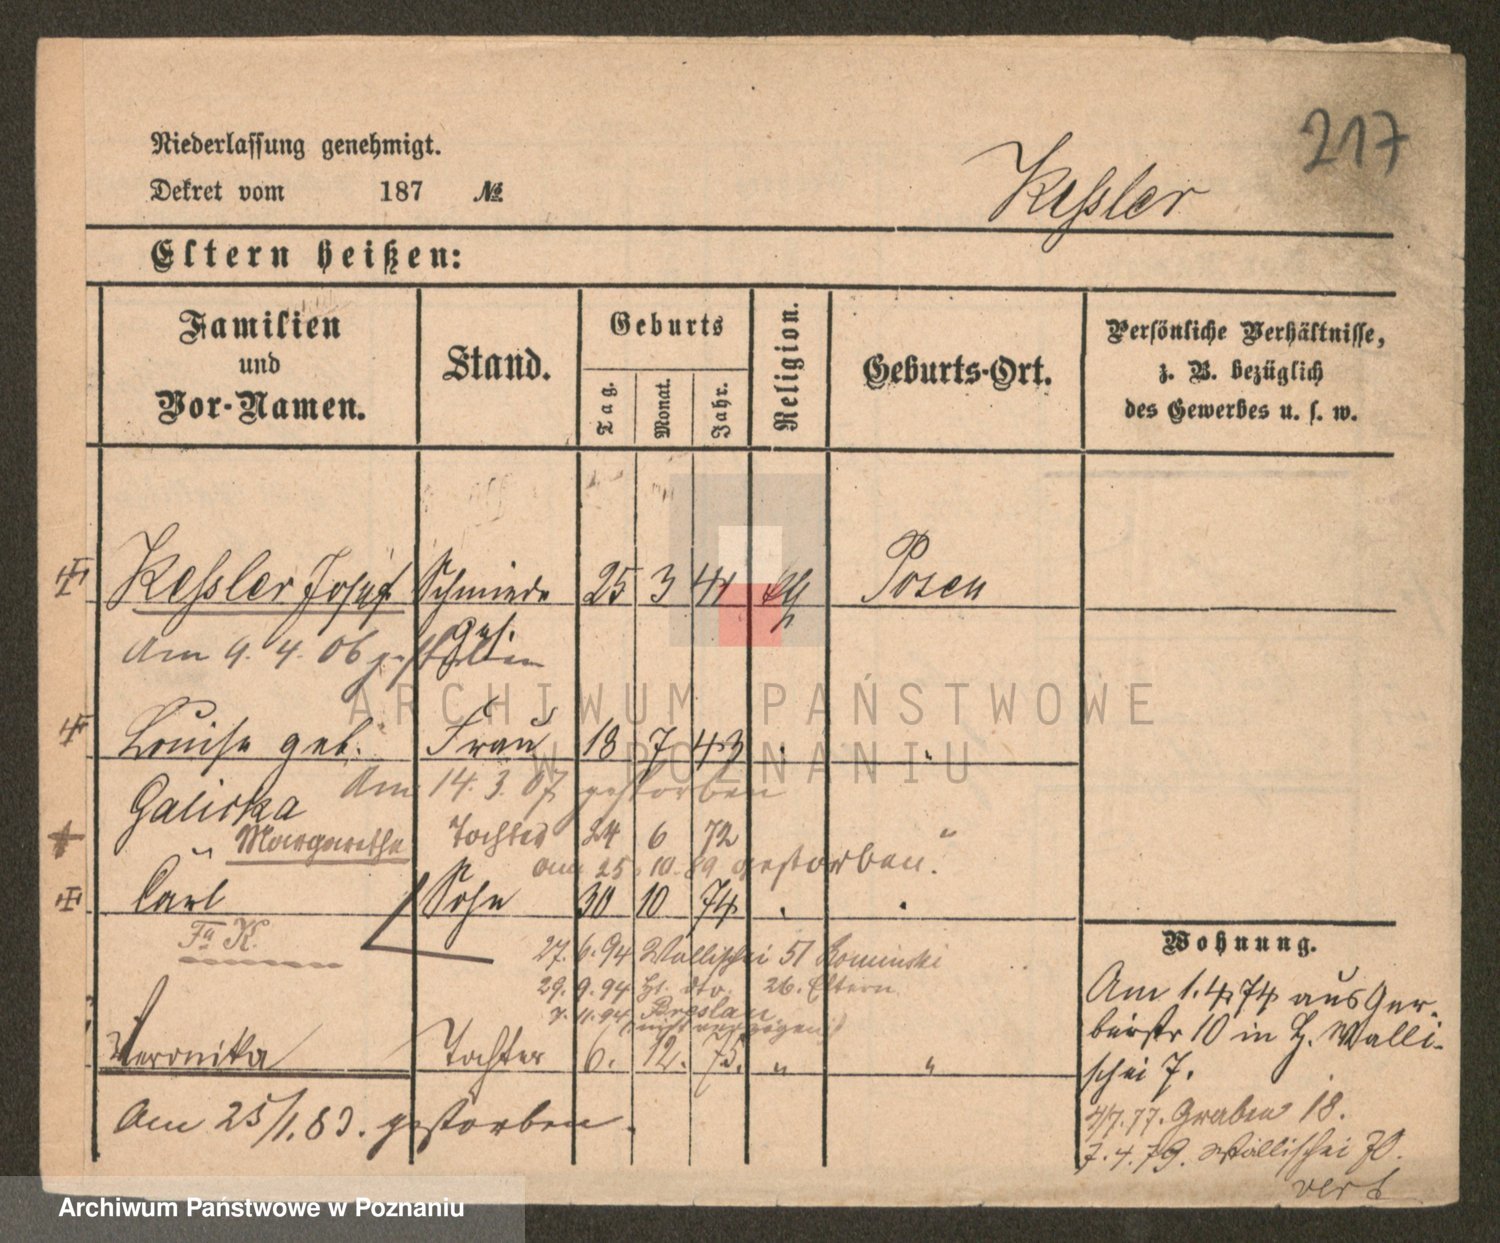 217
Niederlassung genehmigt.
Dekret vom 187 №
Kessler
Eltern heißen:
Familien und Vor-Namen.
Stand.
Geburts
Tag.
Monat.
Jahr.
Religion.
Geburts-Ort.
Persönliche Verhältnisse,
z. B. bezüglich
des Gewerbes u. s. w.
Kessler Josef Schmiede 25 3 41 Posen
ges.
Am 9. 4. 06 gestorben
Louise geb. Frau 18 7 43 " "
Am 14. 3. 07 gestorben
Galicka
Margarethe Tochter 24 6 72 "
am 25. 10. 89 gestorben.
Carl Sohn 30 10 74 " "
Fa K.
27. 6. 94 Wallischei 51 Kominski
29. 9. 94 dto. 26. Eltern
7. 11. 94 Breslau
Veronika Tochter 6. 12. 75. " "
Am 25/1. 83. gestorben.
Wohnung.
Am 1. 4. 74 aus Ger-
berstr 10 in H. Walli-
schei 7.
4/7. 77. Graben 18.
7. 4. 79. Wallischei 70.
vert
ARCHIWUM PAŃSTWOWE
W POZNANIU
Archiwum Państwowe w Poznaniu